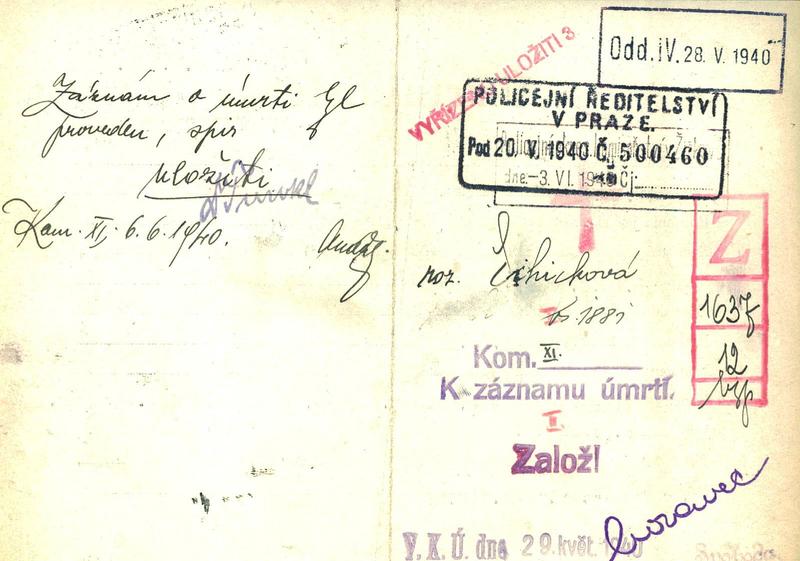 Záznam o úmrtí
proveden, spis
uložiti
Kom. XI, 6.6.1940.
Odd. IV. 28. V. 1940
ULOŽITI 3
POLICEJNÍ ŘEDITELSTVÍ
V PRAZE.
Pod 20. V. 1940 Č. 500460
dne -3. VI. 1940 Čj.
T
Z
roz.
1881
1637
12
Kom. XI.
K záznamu úmrtí.
II.
Založí
Moravec
V. K. Ú. dne 29. květ. 1940